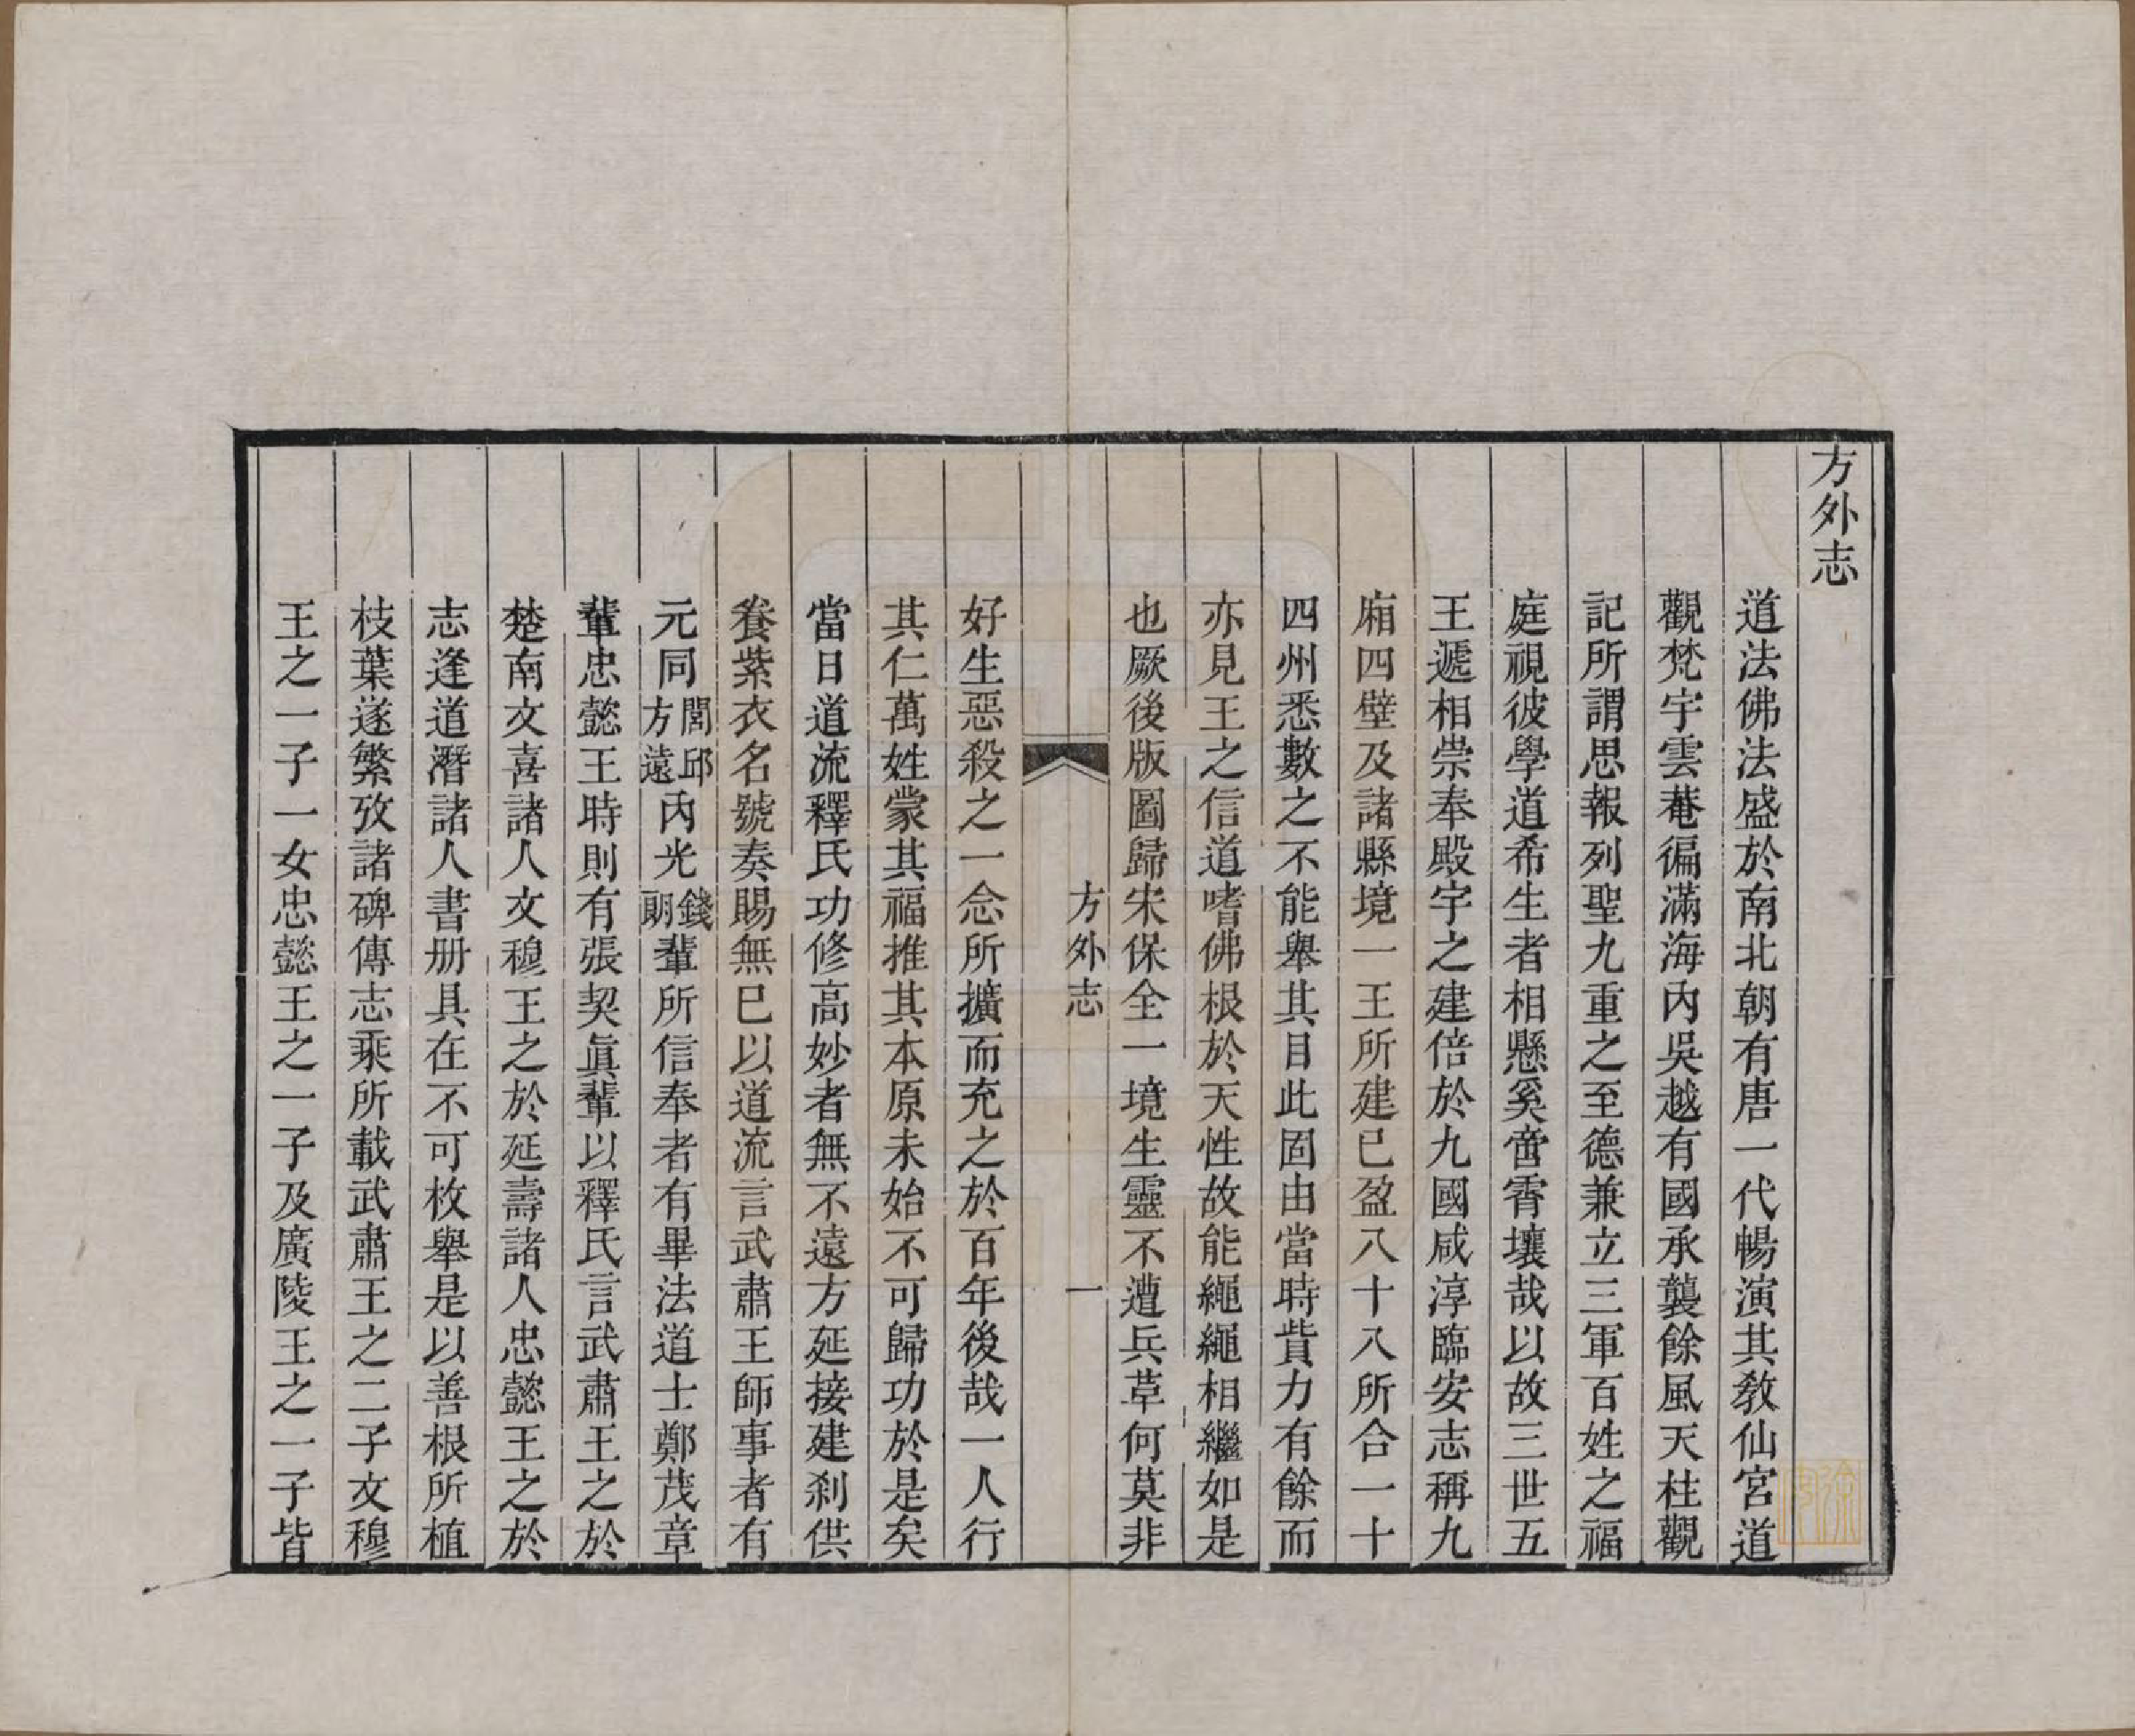 方外志
道法佛法盛於南北朝有唐一代暢演其敎仙宮道
觀梵宇雲菴徧滿海內吳越有國承襲餘風天柱觀
記所謂思報列聖九重之至德兼立三軍百姓之福
庭視彼學道希生者相懸奚啻霄壤哉以故三世五
王遞相崇奉殿宇之建倍於九國咸淳臨安志稱九
廂四壁及諸縣境一王所建已盈八十八所合一十
四州悉數之不能舉其目此固由當時貲力有餘而
亦見王之信道嗜佛根於天性故能繩繩相繼如是
也厥後版圖歸宋保全一境生靈不遭兵革何莫非
方外志
一
好生惡殺之一念所擴而充之於百年後哉一人行
其仁萬姓蒙其福推其本原未始不可歸功於是矣
當日道流釋氏功修高妙者無不遠方延接建剎供
養紫衣名號奏賜無已以道流言武肅王師事者有
元同閭邱方遠內光錢朗輩所信奉者有畢法道士鄭茂章
輩忠懿王時則有張契眞輩以釋氏言武肅王之於
楚南文喜諸人文穆王之於延壽諸人忠懿王之於
志逢道潛諸人書册具在不可枚舉是以善根所植
枝葉遂繁攷諸碑傳志乘所載武肅王之二子文穆
王之一子一女忠懿王之一子及廣陵王之一子皆